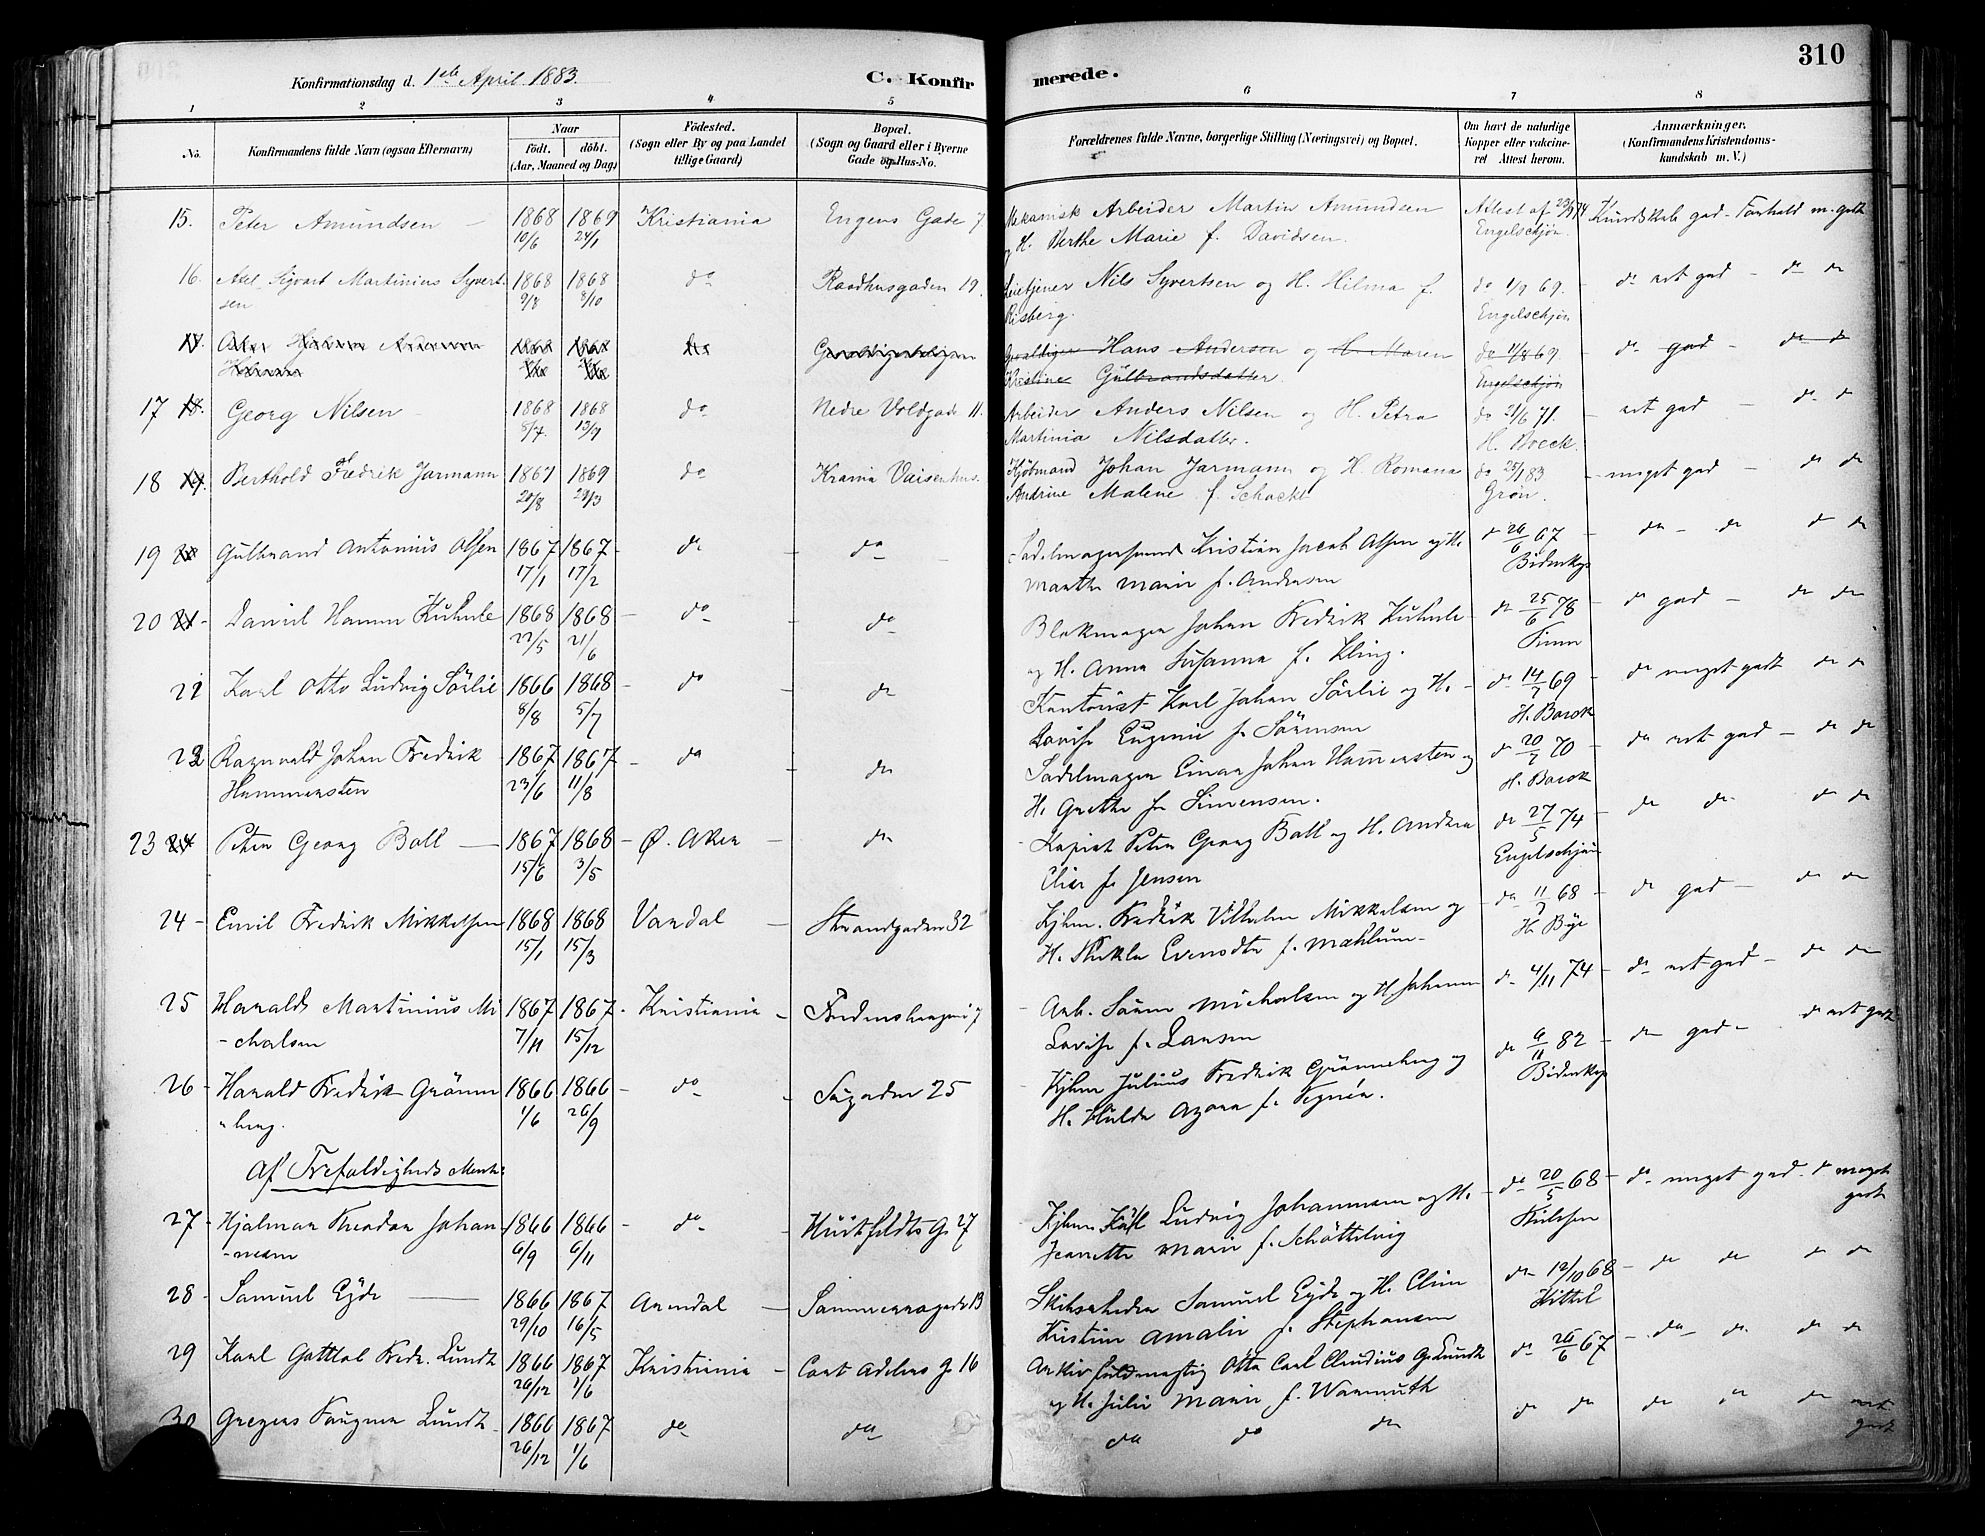 310
Konfirmationsdag d. 1ste April 1883.
C. Konfirmerede.
1 2 3 4 5 6 7 8
No. Konfirmandens fulde Navn (ogsaa Efternavn) Naar födt. döbt. (Aar, Maaned og Dag) Födested. (Sogn eller By og paa Landet tillige Gaard) Bopæl. (Sogn og Gaard eller i Byerne Gade og Hus-No. Forældrenes fulde Navne, borgerlige Stilling (Næringsvei) og Bopæl. Om havt de naturlige Kopper eller vaccineret Attest herom. Anmærkninger. (Konfirmandens Kristendomskundskab m. V.)
15. Peter Amundsen 1868 10/6 1869 24/1 Kristiania Engens Gade 7 Mekanisk Arbeider Martin Amundsen
og H. Berthe Marie f. Davidsen. Attest af Engelschjøn. Kundskab god - Forhold m. godt
16. Axel Sigvart Martinius Syvertsen 1868 9/8 1868 8/10 do Raadhusgaden 19. Leietjener Nils Syvertsen og H. Hilma f.
Risberg. do 1/9 69. Engelschjøn do ret god - do do
Hans Andersen og H. Maren
Kristine Gulbrandsdatter. do 11/8 69. Engelschjøn do god - do do
17 18. Georg Nilsen 1868 1868 13/9 do Nedre Voldgade 11. Arbeider Anders Nilsen og H. Petra
Martinia Nilsdatter. do 21/6 71. H. Boeck. ret god - do do
18 19. Berthold Fredrik Jarmann 1867 20/8 1869 29/3 do Krania Vaisenhus. Kjøbmand Johan Jarmann og H. Romana
Andrine Malene f. Schackt do 25/1 83 Grøn. - meget god - do do
19 20 Gulbrand Antonius Olsen 1867 17/1 1867 17/2 do do Sadelmagersvend Kristian Jacob Olsen og H.
Marthe Marie f. Andersen do 26/6 67 Bidenkap do - do do do
20 21 - Daniel Hamm Kuhnle 1868 22/5 1868 21/6 do do Blokmager Johan Fredrik Kuhnle
og H. Anna Susanna f. Kling. do 25/6 78 do god - do do
21 Karl Otto Ludvig Sörlie 1866 8/8 1868 5/7 do do Kontorist Karl Johan Sörlie og H.
Lovise Eugenie f. Sörensen do 14/7 69 do meget godt do do
22 Ragnvald Johan Fredrik Hammersten 1867 23/6 1867 11/8 do do Sadelmager Einar Johan Hammersten og
H. Grethe f. Simensen. do 20/7 70 do ret god - do do
23 24 Peter Georg Boll 1867 15/6 1868 3/5 Ø. Aker do Peter Georg Boll og H. Andrea
Elise f. Jensen do 27/5 74 Engelschjøn do do do do
24 - Emil Fredrik Mikkelsen 1868 15/1 1868 15/3 Strandgaden 32 Kjbm. Fredrik Vilhelm Mikkelsen og
H. Thekla Evensdtr f. Mæhlum do 11/7 68 H. Bÿe do god - do do
25 Harald Martinius Michalsen 1867 7/11 1867 15/12 Kristiania Fredensborgvei 7 Arb. Sören Michalsen og H. Johanne
Lovise f. Larsen do 4/11 74 do ret god - do do
26 - Harald Fredrik Grönneberg. 1866 1/6 1866 26/9 do Søgaden 25 Kjbm Julius Fredrik Grönneberg og
H. Hulda f. Tegnér. do 9/11 82 Bidenkap do god - do ret godt
Af Trefoldigheds Menh:
27 - Hjalmar Theodor Johannesen 1866 6/9 1866 6/11 do Huitfeldts G. 27 Kjbm Karl Ludvig Johannesen og H.
Jeanette Marie f. Schöttelvig do 20/5 68 do meget god. do meget godt
28 - Samuel Eyde 1866 29/10 1867 16/5 Arendal Sommerrogade 13 Skibsrheder Samuel Eyde og H. Eline
Kristine Amalie f. Stephansen do 12/10 68 Kittel do do do do
29 Karl Gottlob Fredr. Lundh 1866 26/12 1867 1/6 Kristiania Cort Adelers G. 16 Arkivfuldmægtig Otto Carl Claudius G. Lundh
og H. Julie Marie f. Warmuth do 26/6 67 do do do do
30 Gregers Fougner Lundh 1866 26/12 1867 1/6 do do do do do do do do do do ret godt